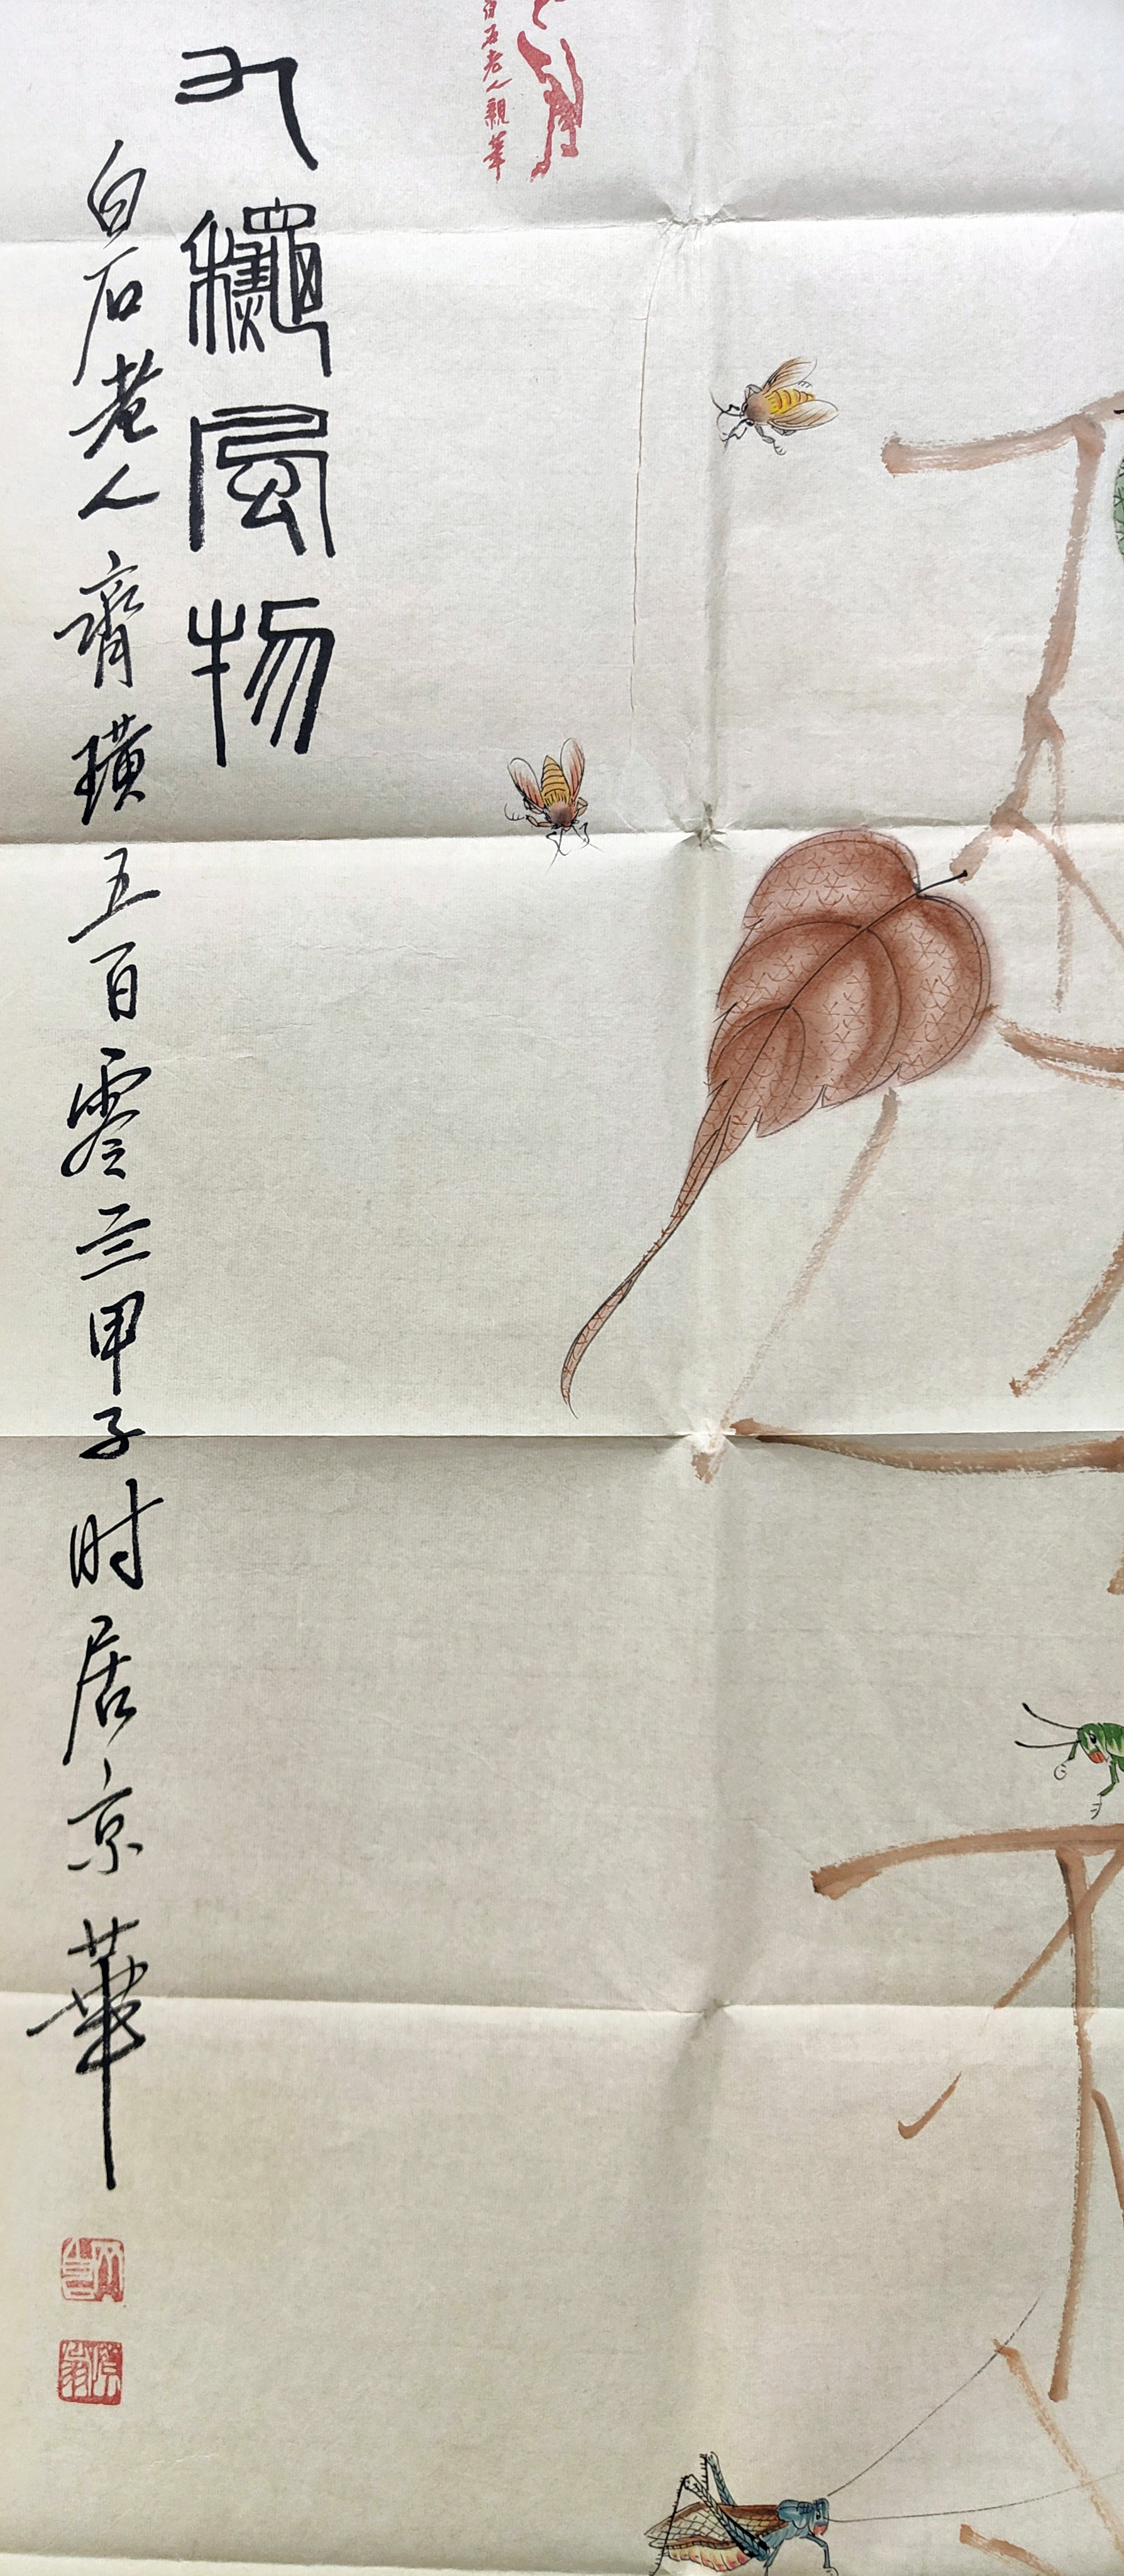 白石老人親筆
九龝風物
白石老人齊璜五百零三甲子时居京華